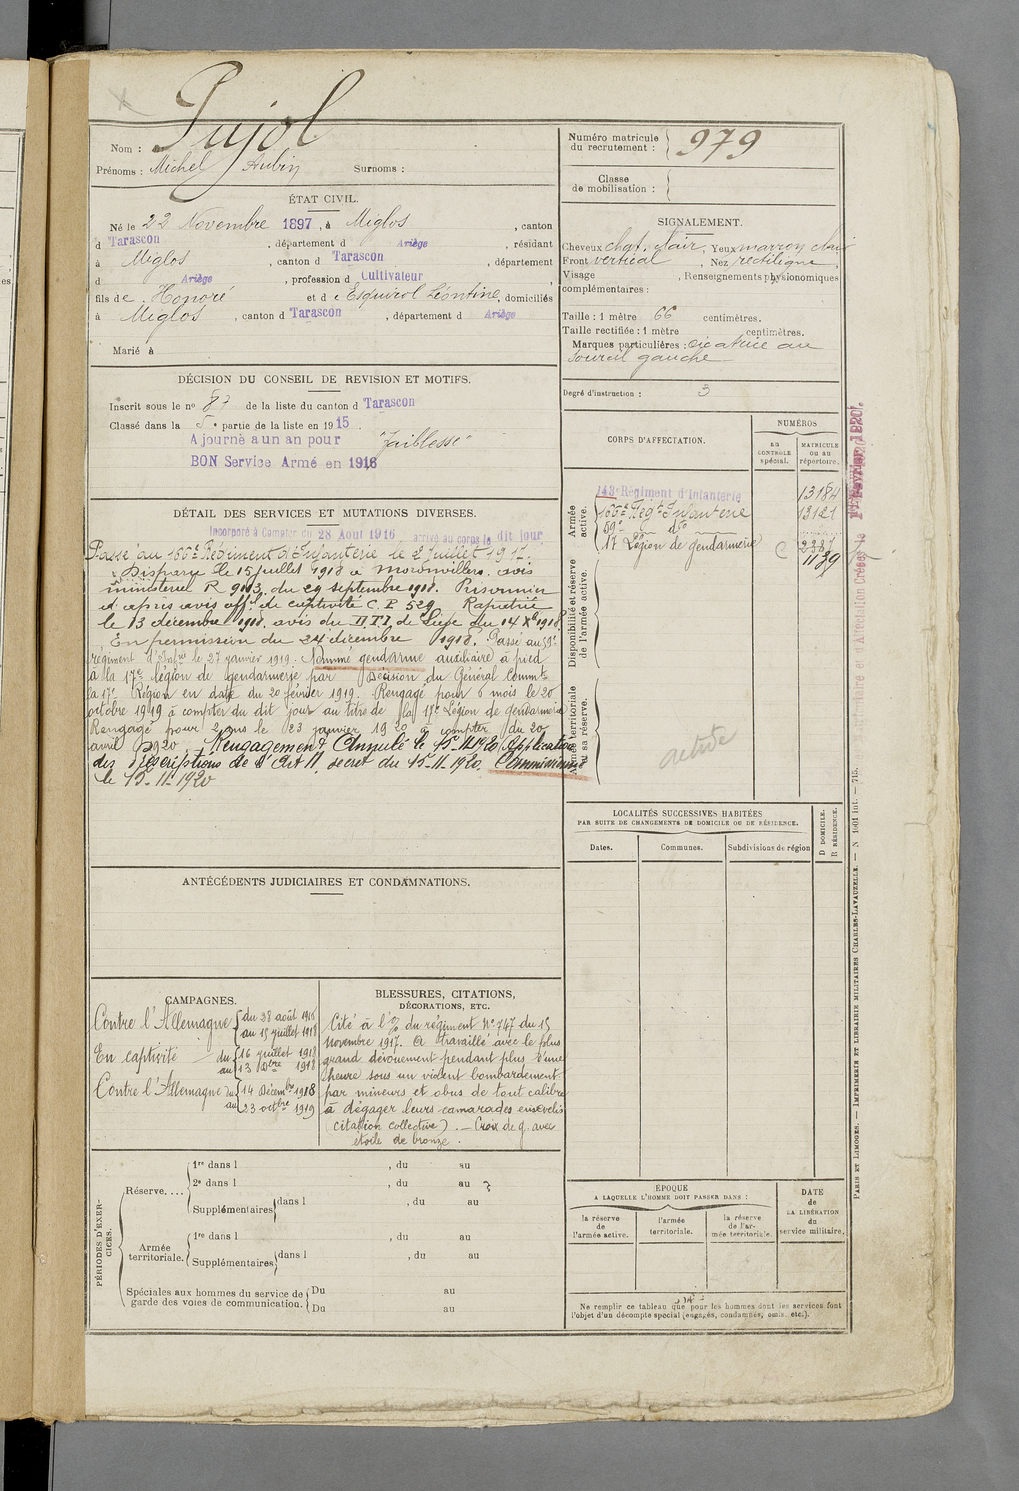 Pujol
Nom :
Prénoms : Michel Aubin Surnoms :
ÉTAT CIVIL.
Né le 22 Novembre 1897, à Miglos, canton
d Tarascon, département d Ariège, résidant
à Miglos, canton d Tarascon, département
d Ariège, profession d Cultivateur,
fils de Honoré et d Esquirol Léontine, domiciliés
à Miglos, canton d Tarascon, département d Ariège
Marié à
DÉCISION DU CONSEIL DE REVISION ET MOTIFS.
Inscrit sous le no 87 de la liste du canton d Tarascon
Classé dans la 5e partie de la liste en 1915.
Ajourné a un an pour "faiblesse"
BON Service Armé en 1916
DÉTAIL DES SERVICES ET MUTATIONS DIVERSES.
Incorporé à Compter du 28 Aout 1916, arrivé au corps le dit jour
Passé au 166e Régiment d'Infanterie le 2 Juillet 1917.
Disparu le 15 juillet 1918 à Moronvillers. avis
ministeriel R 9113 du 29 septembre 1918. Prisonnier
d'après avis off. de captivité C.P. 529 Rapatrié
le 13 décembre 1918. avis du de Liège du 14 Xbre 1918
En permission du 24 décembre 1918. Passé au 59e
régiment d'Infrie le 27 janvier 1919. Nommé gendarme auxiliaire à pied
à la 17e légion de gendarmerie par Décision du Général Commt
la 17e Région en date du 20 février 1919. Rengagé pour 6 mois le 20
octobre 1919 à compter du dit jour au titre de la 17e Légion de gendarmerie
Rengagé pour 2 ans le 23 janvier 1920 à compter du 20
avril 1920. Rengagement Annulé le 15-11-1920 Application
des prescriptions de l'Art 11, decret du 15-11-1920. Commissionné
le 15-11-1920
ANTÉCÉDENTS JUDICIAIRES ET CONDAMNATIONS.
CAMPAGNES.
Contre l'Allemagne du 28 août 1916
au 15 juillet 1918
En captivité du 16 juillet 1918
au 13 Dbre 1918
Contre l'Allemagne du 14 Décembre 1918
au 23 octbre 1919
BLESSURES, CITATIONS,
DÉCORATIONS, ETC.
Cité à l'% du régiment No 747 du 15
Novembre 1917. A travaillé avec le plus
grand dévouement pendant plus d'une
heure sous un violent bombardement
par mineurs et obus de tout calibre
à dégager leurs camarades ensevelis
(citation collective). — Croix de g. avec
étoile de bronze.
PÉRIODES D'EXERCICES.
Réserve....
1re dans l , du au
2e dans l , du au
Supplémentaires dans l , du au
Armée territoriale.
1re dans l , du au
Supplémentaires dans l , du au
Spéciales aux hommes du service de garde des voies de communication.
Du au
Du au
Numéro matricule du recrutement : 979
Classe de mobilisation :
SIGNALEMENT.
Cheveux chat. clair, Yeux marron clair
Front vertical, Nez rectiligne
Visage , Renseignements physionomiques
complémentaires :
Taille : 1 mètre 66 centimètres.
Taille rectifiée : 1 mètre centimètres.
Marques particulières : cicatrice au
sourcil gauche
Degré d'instruction : 3
CORPS D'AFFECTATION.
NUMÉROS
au CONTRÔLE spécial.
MATRICULE ou au répertoire.
Armée active.
143e Régiment d'Infanterie 13184
166e Regt Infanterie 13121
59e do
17 Légion de gendarmerie C 2387
1139
Disponibilité et réserve de l'armée active.
Armée territoriale et sa réserve.
active
LOCALITÉS SUCCESSIVES HABITÉES
PAR SUITE DE CHANGEMENTS DE DOMICILE OU DE RÉSIDENCE.
Dates.
Communes.
Subdivisions de région
D DOMICILE.
R RÉSIDENCE.
ÉPOQUE
A LAQUELLE L'HOMME DOIT PASSER DANS :
la réserve de l'armée active.
l'armée territoriale.
la réserve de l'armée territoriale.
DATE
de
LA LIBÉRATION
du
service militaire.
Ne remplir ce tableau que pour les hommes dont les services font
l'objet d'un décompte spécial (engagés, condamnés, omis, etc.).
PARIS ET LIMOGES. — IMPRIMERIE ET LIBRAIRIE MILITAIRES CHARLES-LAVAUZELLE. — N 1601 int. — 715.